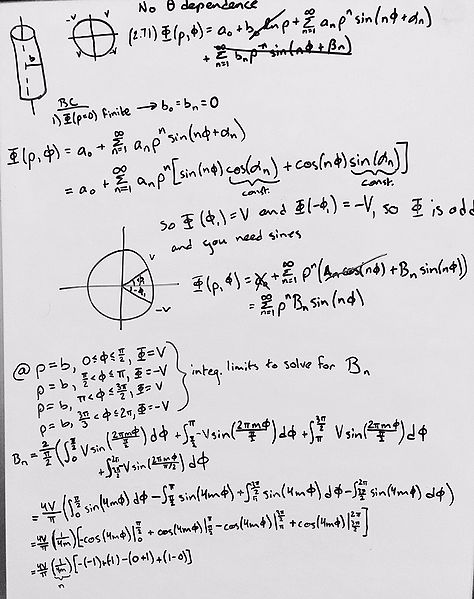 No θ dependence
b
-V V
V -V
(2.71) Φ(ρ,ϕ) = a₀ + b₀ ln ρ + Σ_{n=1}^∞ aₙρⁿ sin(nϕ+αₙ)
+ Σ_{n=1}^∞ bₙρ⁻ⁿ sin(nϕ+βₙ)
BC
1) Φ(ρ=0) finite → b₀ = bₙ = 0
Φ(ρ,ϕ) = a₀ + Σ_{n=1}^∞ aₙρⁿ sin(nϕ+αₙ)
= a₀ + Σ_{n=1}^∞ aₙρⁿ [sin(nϕ)cos(αₙ) + cos(nϕ)sin(αₙ)]
const. const.
so Φ(ϕ₁) = V and Φ(-ϕ₁) = -V, so Φ is odd
and you need sines
V
ϕ₁
-ϕ₁
-V
Φ(ρ,ϕ) = + Σ_{n=1}^∞ ρⁿ (Aₙ cos(nϕ) + Bₙ sin(nϕ))
= Σ_{n=1}^∞ ρⁿ Bₙ sin(nϕ)
@ ρ=b, 0≤ϕ≤π/2, Φ=V
ρ=b, π/2<ϕ≤π, Φ=-V
ρ=b, π<ϕ≤3π/2, Φ=V
ρ=b, <ϕ≤2π, Φ=-V
integ. limits to solve for Bₙ
Bₙ = (∫₀^{π/2} V sin( ) dϕ + ∫_{π/2}^{π} -V sin( ) dϕ + ∫_π^{3π/2} V sin( ) dϕ
+ ∫_{3π/2}^{2π} -V sin(2πmϕ/π/2) dϕ
= 4V/π (∫₀^{π/2} sin(4mϕ) dϕ - ∫_{π/2}^{π} sin(4mϕ) dϕ + ∫_π^{3π/2} sin(4mϕ) dϕ - ∫_{3π/2}^{2π} sin(4mϕ) dϕ)
= 4V/π (1/4m) [-cos(4mϕ)|₀^{π/2} + cos(4mϕ)|_{π/2}^{π} - cos(4mϕ)|_π^{3π/2} + cos(4mϕ)|_{3π/2}^{2π}]
= 4V/π (1/4m) [-(-1)+(-1) - (0+1) + (1-0)]
n